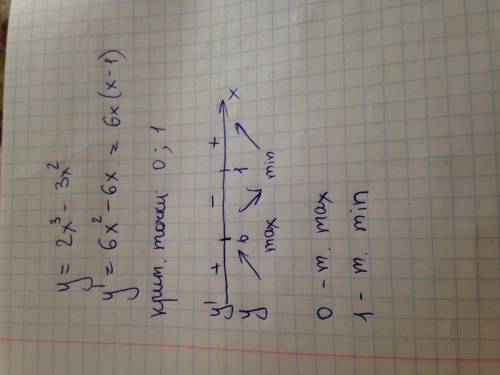 y = 2x³ - 3x²
y' = 6x² - 6x = 6x(x-1)
крит. точки: 0; 1
y' + - + x
y 0 1
max min
0 - т. max
1 - т. min